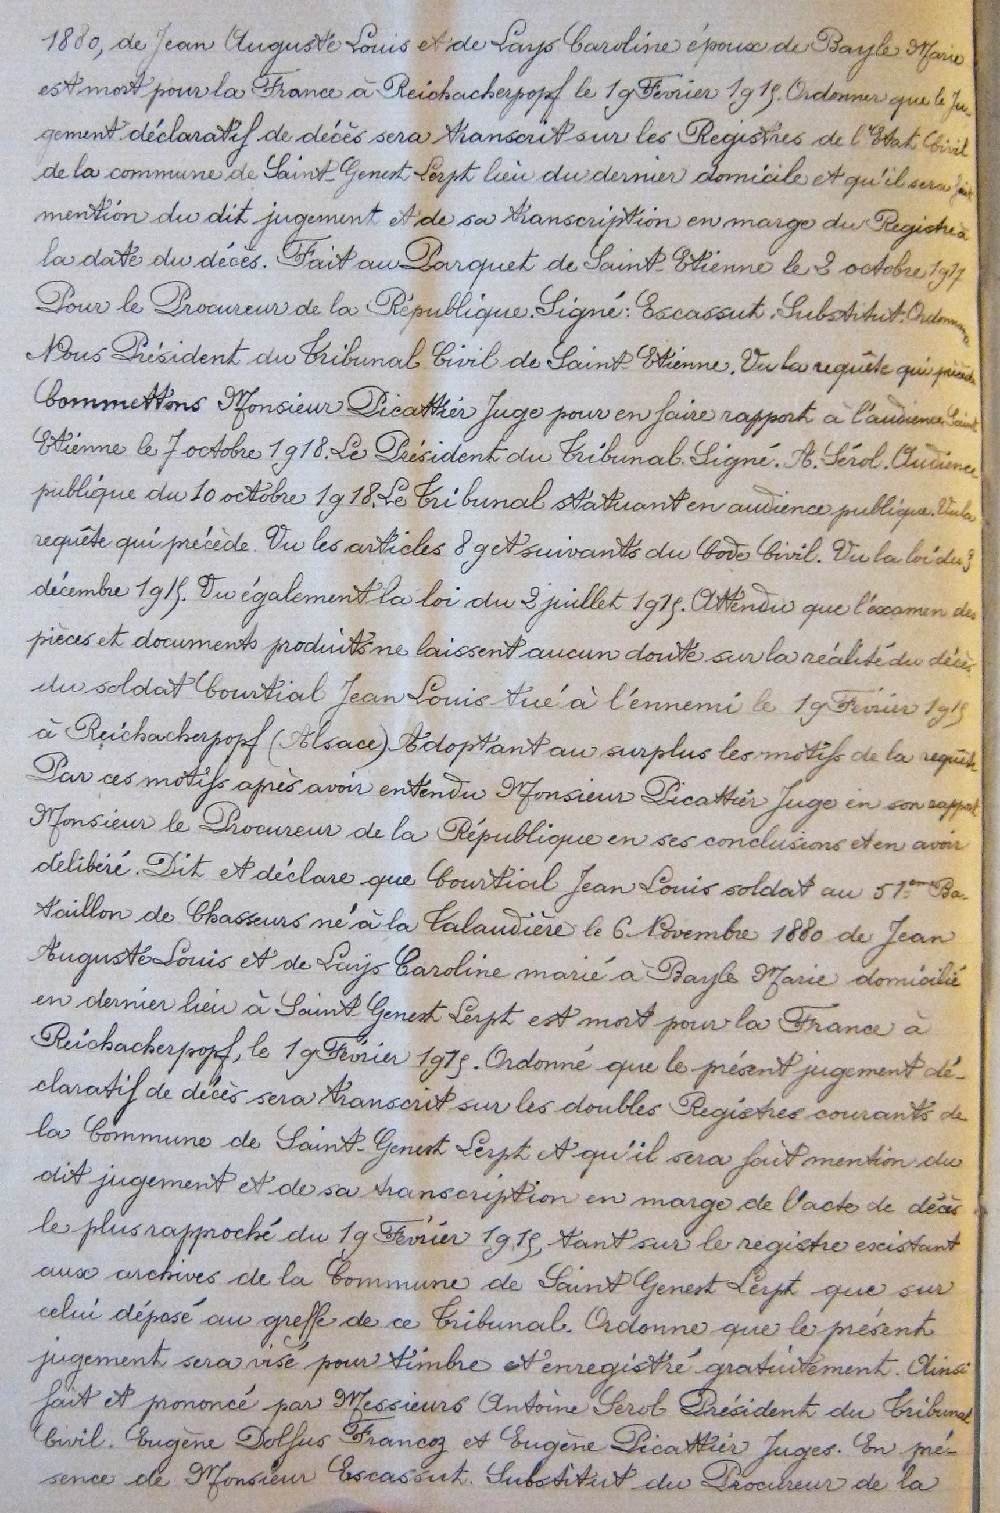 1880, de Jean Auguste Louis et de Lays Caroline époux de Bayle Marie
est mort pour la France à Reichacherpopf le 19 Février 1915. Ordonner que le Ju-
gement déclaratif de décès sera transcrit sur les Registres de l'Etat Civil
de la commune de Saint-Genest Lerpt lieu du dernier domicile et qu'il sera fait
mention du dit jugement et de sa transcription en marge du Registre à
la date du décès. Fait au Parquet de Saint-Etienne le 2 octobre 1917
Pour le Procureur de la République. Signé: Escassut. Substitut. Ordonnance
Nous Président du Tribunal Civil de Saint-Etienne. Vu la requête qui précède
Commettons Monsieur Picattier Juge pour en faire rapport à l'audience Saint
Etienne le 7 octobre 1918. Le Président du Tribunal. Signé. A. Sérol. Audience
publique du 10 octobre 1918. Le Tribunal statuant en audience publique. Vu la
requête qui précède. Vu les articles 89 et suivants du Code Civil. Vu la loi du 3
décembre 1915. Vu également la loi du 2 juillet 1915. Attendu que l'examen des
pièces et documents produits ne laissent aucun doute sur la réalité du décès
du soldat Courtial Jean Louis tué à l'énnemi le 19 Février 1915
à Reichacherpopf (Alsace) Adoptant au surplus les motifs de la requête
Par ces motifs après avoir entendu Monsieur Picattier Juge en son rapport
Monsieur le Procureur de la République en ses conclusions et en avoir
délibéré. Dit et déclare que Courtial Jean Louis soldat au 51eme Ba-
taillon de Chasseurs né à la Talaudière le 6 Novembre 1880 de Jean
Auguste Louis et de Luijs Caroline marié à Bayle Marie domicilié
en dernier lieu à Saint-Genest Lerpt est mort pour la France à
Reichacherpopf, le 19 Février 1915. Ordonné que le présent jugement dé-
claratif de décès sera transcrit sur les doubles Registres courants de
la Commune de Saint-Genest Lerpt et qu'il sera fait mention du
dit jugement et de sa transcription en marge de l'acte de décès
le plus rapproché du 19 Février 1915, tant sur le registre existant
aux archives de la Commune de Saint Genest Lerpt que sur
celui déposé au greffe de ce Tribunal. Ordonne que le présent
jugement sera visé pour timbre et enregistré gratuitement. Ainsi
fait et prononcé par Messieurs Antoine Serol Président du Tribunal
Civil. Eugène Dolfus Francoz et Eugène Picattier Juges. En pré-
sence de Monsieur Escassut. Substitut du Procureur de la